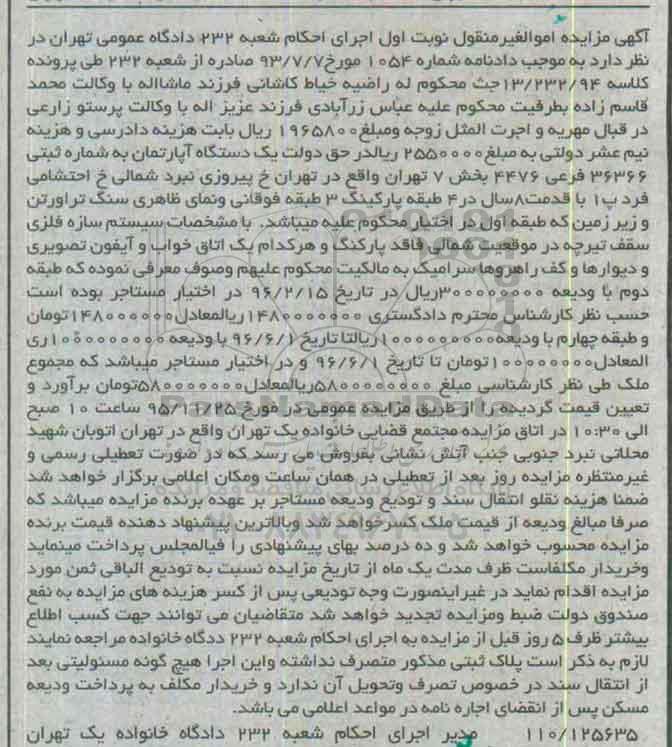 آگهی مزایده اموالغیرمنقول نوبت اول اجرای احکام شعبه ۲۳۲ دادگاه عمومی تهران در
نظر دارد به موجب دادنامه شماره ۱۰۵۴ مورخ۹۳/۷/۷ صادره از شعبه ۲۳۲ طی پرونده
کلاسه ۱۳/۲۳۲/۹۴جث محکوم له راضیه خیاط کاشانی فرزند ماشااله با وکالت محمد
قاسم زاده بطرفیت محکوم علیه عباس زرآبادی فرزند عزیز اله با وکالت پرستو زارعی
در قبال مهریه و اجرت المثل زوجه ومبلغ۱۹۶۵۸۰۰ ریال بابت هزینه دادرسی و هزینه
نیم عشر دولتی به مبلغ۲۵۵۰۰۰۰ ریالدر حق دولت یک دستگاه آپارتمان به شماره ثبتی
۳۶۳۶۶ فرعی ۴۴۷۶ بخش ۷ تهران واقع در تهران خ پیروزی نبرد شمالی خ احتشامی
فرد پ۱ با قدمت۸سال در۴ طبقه پارکینگ ۳ طبقه فوقانی ونمای ظاهری سنگ تراورتن
و زیر زمین که طبقه اول در اختیار محکوم علیه میباشد. با مشخصات سیستم سازه فلزی
سقف تیرچه در موقعیت شمالی فاقد پارکنگ و هرکدام یک اتاق خواب و آیفون تصویری
و دیوارها و کف راهروها سرامیک به مالکیت محکوم علیهم وصوف معرفی نموده که طبقه
دوم با ودیعه ۳۰۰۰۰۰۰۰۰ریال در تاریخ ۹۶/۲/۱۵ در اختیار مستاجر بوده است
حسب نظر کارشناس محترم دادگستری ۱۴۸۰۰۰۰۰۰۰ریالمعادل۱۴۸۰۰۰۰۰۰تومان
و طبقه چهارم با ودیعه۱۰۰۰۰۰۰۰۰۰ریالتا تاریخ ۹۶/۶/۱ با ودیعه ۱۰۰۰۰۰۰۰۰۰ری
المعادل۱۰۰۰۰۰۰۰۰تومان تا تاریخ ۹۶/۶/۱ و در اختیار مستاجر میباشد که مجموع
ملک طی نظر کارشناسی مبلغ ۵۸۰۰۰۰۰۰۰۰ریالمعادل۵۸۰۰۰۰۰۰۰تومان برآورد و
تعیین قیمت گردیده را از طریق مزایده عمومی در مورخ ۹۵/۱۱/۲۵ ساعت ۱۰ صبح
الی ۱۰:۳۰ در اتاق مزایده مجتمع قضایی خانواده یک تهران واقع در تهران اتوبان شهید
محلاتی نبرد جنوبی جنب آتش نشانی بفروش می رسد که در صورت تعطیلی رسمی و
غیرمنتظره مزایده روز بعد از تعطیلی در همان ساعت ومکان اعلامی برگزار خواهد شد
ضمنا هزینه نقلو انتقال سند و تودیع ودیعه مستاجر بر عهده برنده مزایده میباشد که
صرفا مبالغ ودیعه از قیمت ملک کسرخواهد شد وبالاترین پیشنهاد دهنده قیمت برنده
مزایده محسوب خواهد شد و ده درصد بهای پیشنهادی را فیالمجلس پرداخت مینماید
وخریدار مکلفاست ظرف مدت یک ماه از تاریخ مزایده نسبت به تودیع الباقی ثمن مورد
مزایده اقدام نماید در غیراینصورت وجه تودیعی پس از کسر هزینه های مزایده به نفع
صندوق دولت ضبط ومزایده تجدید خواهد شد متقاضیان می توانند جهت کسب اطلاع
بیشتر ظرف ۵ روز قبل از مزایده به اجرای احکام شعبه ۲۳۲ ددگاه خانواده مراجعه نمایند
لازم به ذکر است پلاک ثبتی مذکور متصرف نداشته واین اجرا هیچ گونه مسئولیتی بعد
از انتقال سند در خصوص تصرف وتحویل آن ندارد و خریدار مکلف به پرداخت ودیعه
مسکن پس از انقضای اجاره نامه در مواعد اعلامی می باشد.
۱۱۰/۱۲۵۶۳۵ مدیر اجرای احکام شعبه ۲۳۲ دادگاه خانواده یک تهران